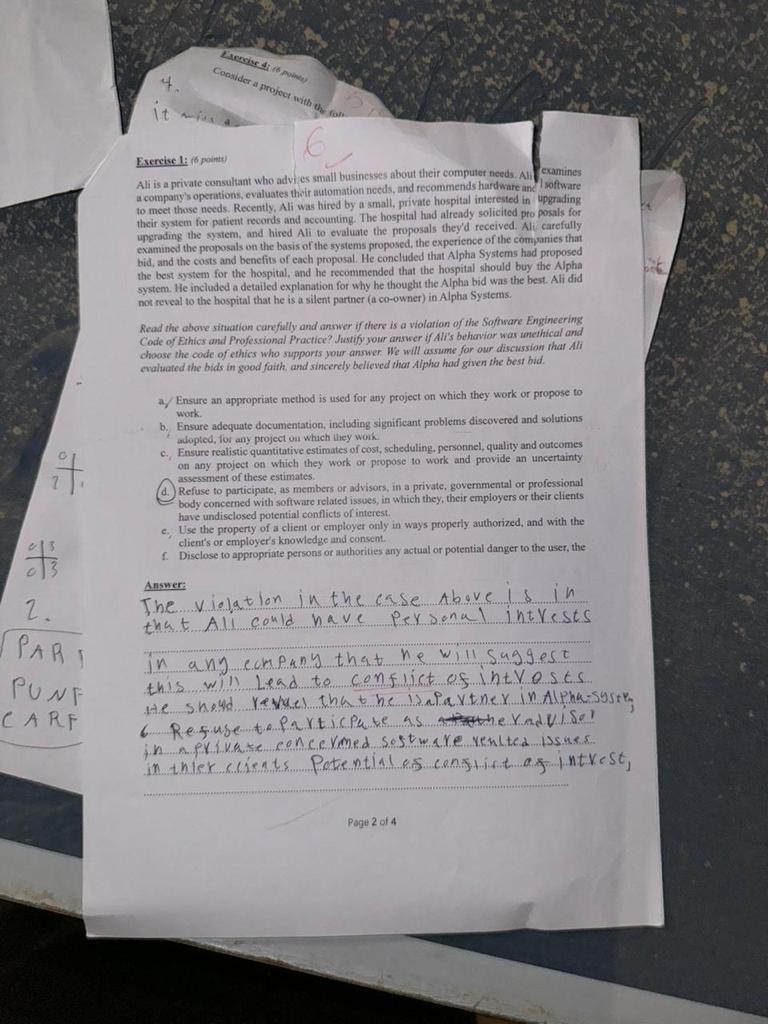 Exercise 4: (6 points)
Consider a project with the
4.
it
6
Exercise 1: (6 points)
Ali is a private consultant who advises small businesses about their computer needs. Ali examines
a company's operations, evaluates their automation needs, and recommends hardware and software
to meet those needs. Recently, Ali was hired by a small, private hospital interested in upgrading
their system for patient records and accounting. The hospital had already solicited proposals for
upgrading the system, and hired Ali to evaluate the proposals they'd received. Ali carefully
examined the proposals on the basis of the systems proposed, the experience of the companies that
bid, and the costs and benefits of each proposal. He concluded that Alpha Systems had proposed
the best system for the hospital, and he recommended that the hospital should buy the Alpha
system. He included a detailed explanation for why he thought the Alpha bid was the best. Ali did
not reveal to the hospital that he is a silent partner (a co-owner) in Alpha Systems.
Read the above situation carefully and answer if there is a violation of the Software Engineering
Code of Ethics and Professional Practice? Justify your answer if Ali's behavior was unethical and
choose the code of ethics who supports your answer. We will assume for our discussion that Ali
evaluated the bids in good faith, and sincerely believed that Alpha had given the best bid.
a. Ensure an appropriate method is used for any project on which they work or propose to
work.
b. Ensure adequate documentation, including significant problems discovered and solutions
adopted, for any project on which they work.
c. Ensure realistic quantitative estimates of cost, scheduling, personnel, quality and outcomes
on any project on which they work or propose to work and provide an uncertainty
assessment of these estimates.
d. Refuse to participate, as members or advisors, in a private, governmental or professional
body concerned with software related issues, in which they, their employers or their clients
have undisclosed potential conflicts of interest.
e. Use the property of a client or employer only in ways properly authorized, and with the
client's or employer's knowledge and consent.
f. Disclose to appropriate persons or authorities any actual or potential danger to the user, the
Answer:
The violation in the case Above is in
that Ali could have personal intrests
in any company that he will suggest
this will Lead to conflict of intrests
He should that he is a Partner in Alpha-
Refuse to Participate as
in a private concerned software issues
in thier clients Potential of conflict of intrest,
Page 2 of 4
2.
PAR
PUNF
CARF